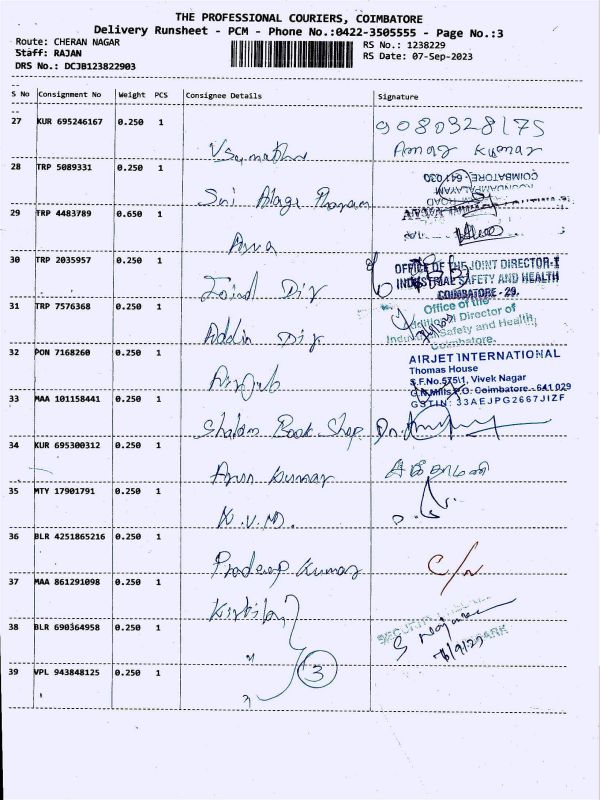 THE PROFESSIONAL COURIERS, COIMBATORE
Delivery Runsheet - PCM - Phone No.:0422-3505555 - Page No.:3
Route: CHERAN NAGAR
RS No.: 1238229
Staff: RAJAN
RS Date: 07-Sep-2023
DRS No.: DCJB123822903
S No Consignment No Weight PCS Consignee Details Signature
27 KUR 695246167 0.250 1 9080328175
Amar Kumar
28 TRP 5089331 0.250 1 COIMBATORE - 641 020
Sri
29 TRP 4483789 0.650 1
30 TRP 2035957 0.250 1 OFFICE OF THE JOINT DIRECTOR-I
INDUSTRIAL SAFETY AND HEALTH
Joint Dir COIMBATORE - 29.
31 TRP 7576368 0.250 1 Office of the
Additional Director of
Industrial Safety and Health,
Addln Dir Coimbatore.
32 PON 7168260 0.250 1 AIRJET INTERNATIONAL
Thomas House
S.F.No.575\1, Vivek Nagar
Airjet G.N.Mills P.O. Coimbatore - 641 029
33 MAA 101158441 0.250 1 GSTIN: 33AEJPG2667J1ZF
Shalom Book Shop
34 KUR 695300312 0.250 1
Arun Kumar
35 MTY 17901791 0.250 1
K.V.M.
36 BLR 4251865216 0.250 1 C/n
Pradeep Kumar
37 MAA 861291098 0.250 1
38 BLR 690364958 0.250 1 SECURITY
"
3
39 VPL 943848125 0.250 1